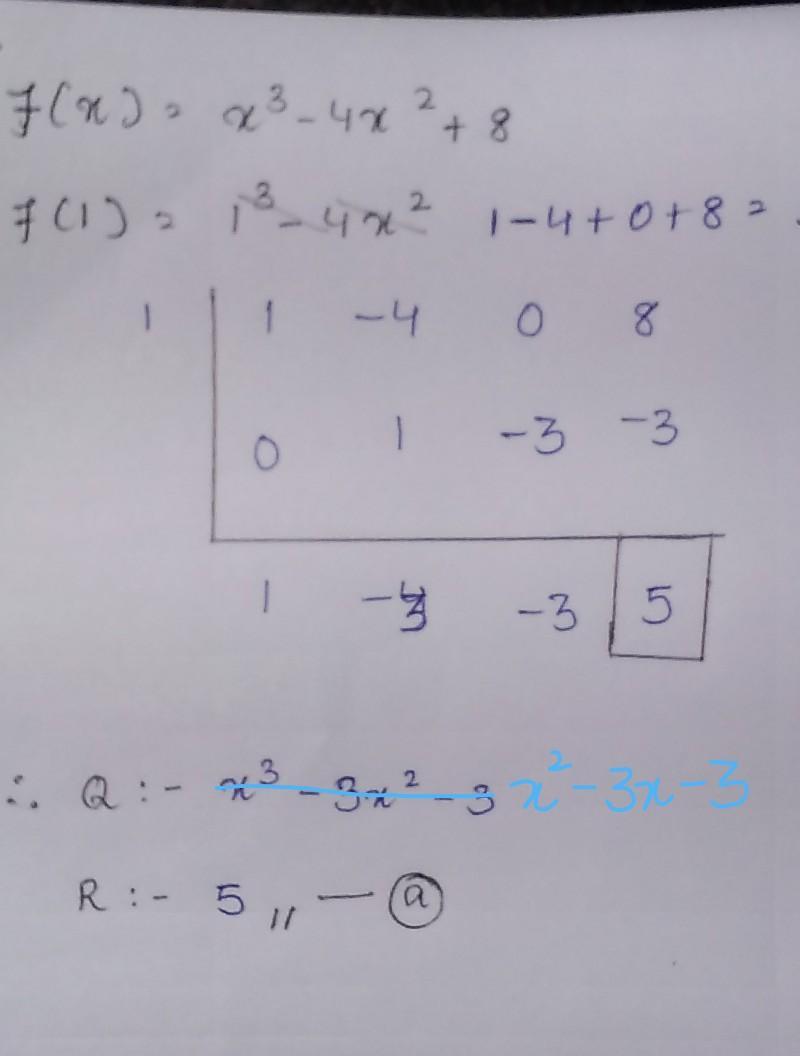 f(x) = x³ - 4x² + 8
f(1) = 1³ - 4x² 1 - 4 + 0 + 8 =
1 | 1 -4 0 8
0 1 -3 -3
1 -3 -3 5
∴ Q :- x³ - 3x² - 3 x² - 3x - 3
R :- 5 ,, — (a)